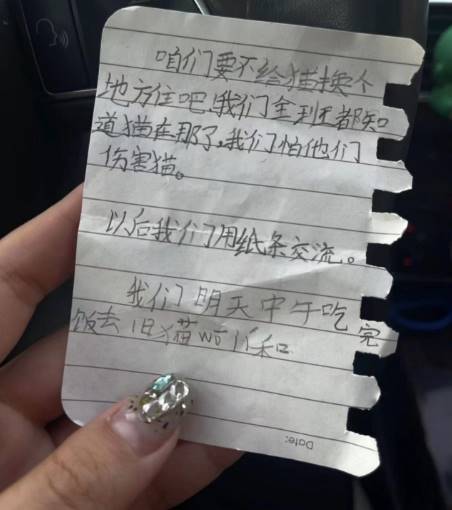 咱们要不给猫换个
地方住吧!我们全班都知
道猫在那了,我们怕他们
伤害猫。
以后我们用纸条交流。
我们明天中午吃完
饭去旧猫wō
Date: